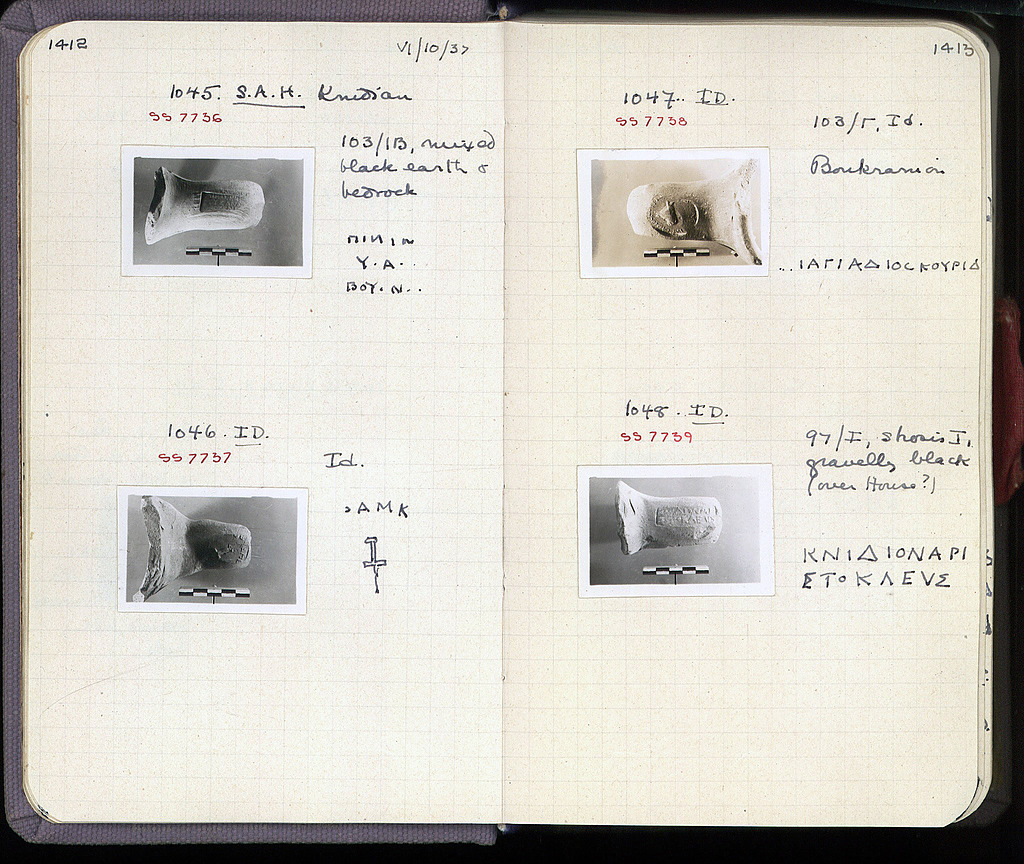 1412
VI/10/37
1045. S.A.H. Knidian
SS 7736
103/IB, mixed
black earth &
bedrock
Υ.Α..
ΒΟΥ.Ν..
1046. ID.
SS 7737
Id.
ΑΜΚ
1413
1047. ID.
SS 7738
103/Γ, Id.
Boukranion
...ΙΑΓΙΑΔΙΟC ΚΟΥΡΙΔ
1048. ID.
SS 7739
97/I, strosis I,
gravelly black
(over House?)
ΚΝΙΔΙΟΝΑΡΙ
ΣΤΟΚΛΕΥΣ